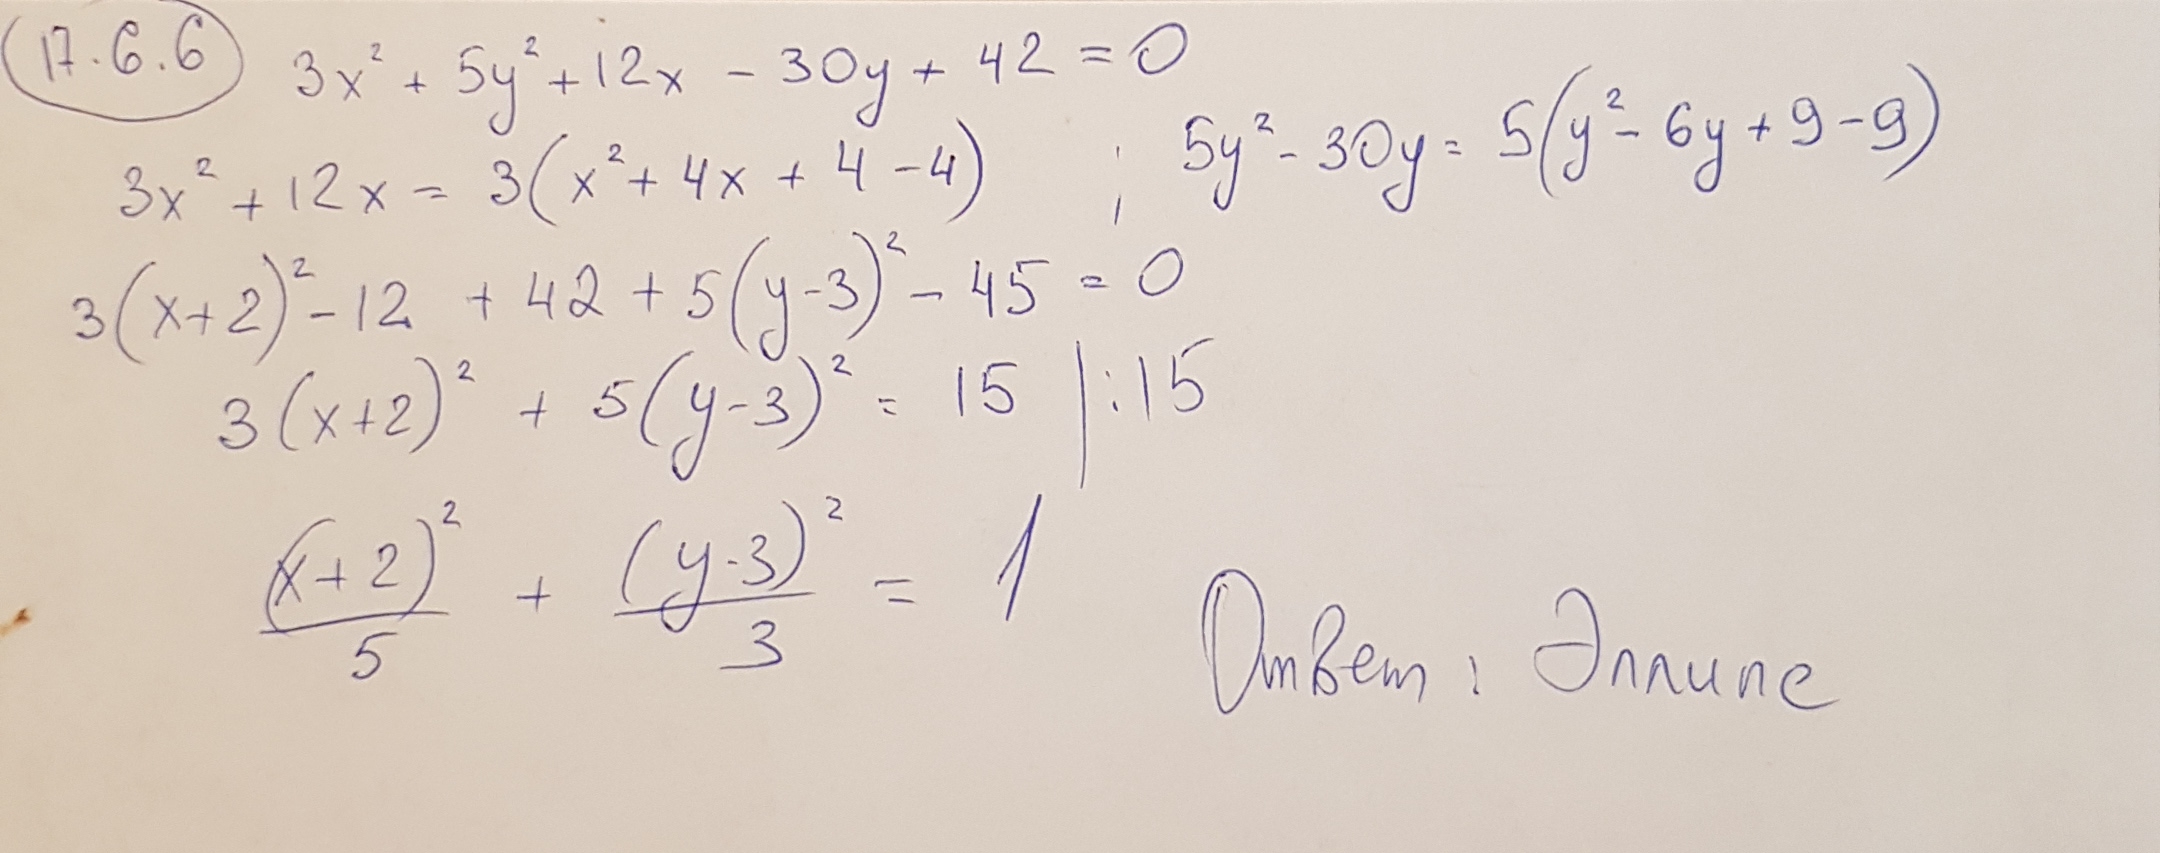 17.6.6 3x² + 5y² + 12x - 30y + 42 = 0
3x² + 12x = 3(x² + 4x + 4 - 4) ; 5y² - 30y = 5(y² - 6y + 9 - 9)
3(x+2)² - 12 + 42 + 5(y-3)² - 45 = 0
3(x+2)² + 5(y-3)² = 15 | : 15
(x+2)²/5 + (y-3)²/3 = 1
Ответ: Эллипс